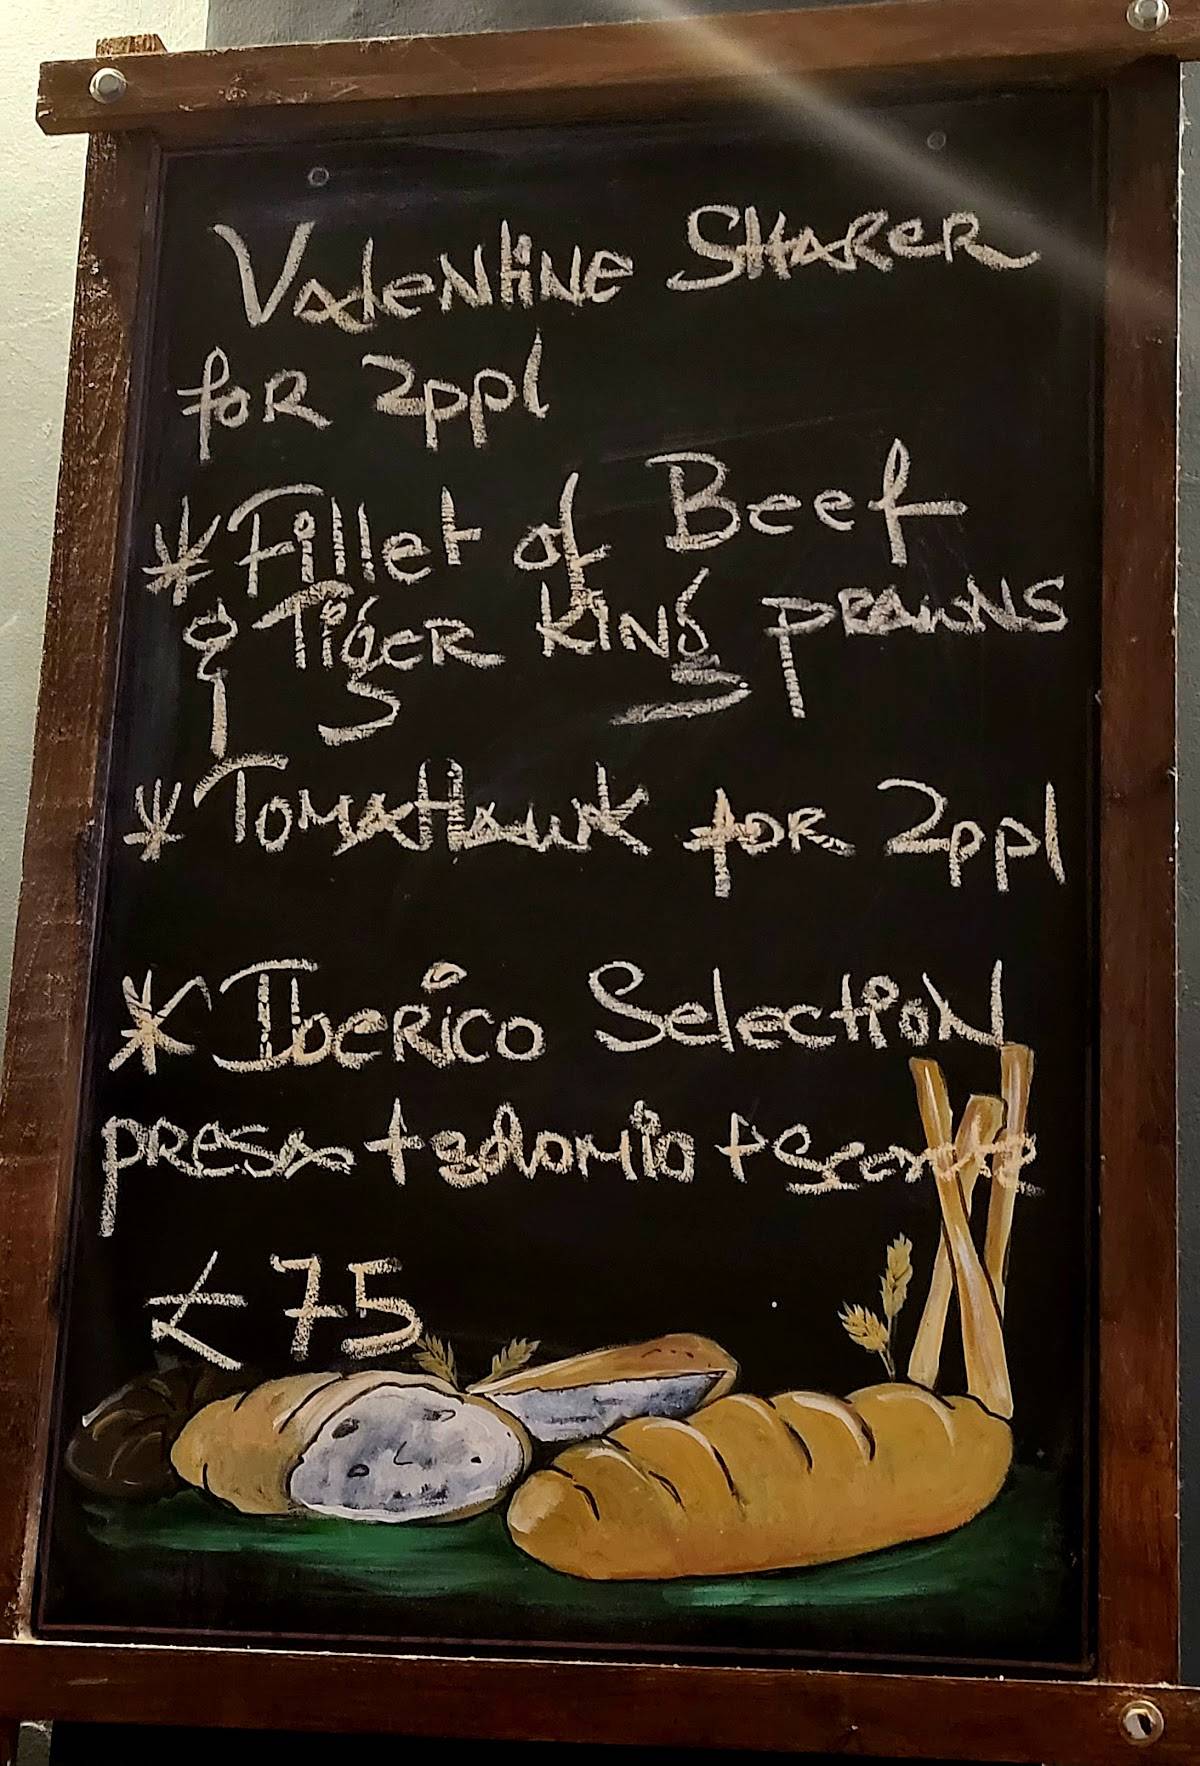 Valentine Sharer
for 2ppl
* Fillet of Beef
& Tiger King prawns
* Tomahawk for 2ppl
* Iberico Selection
presa + solomio +
£75